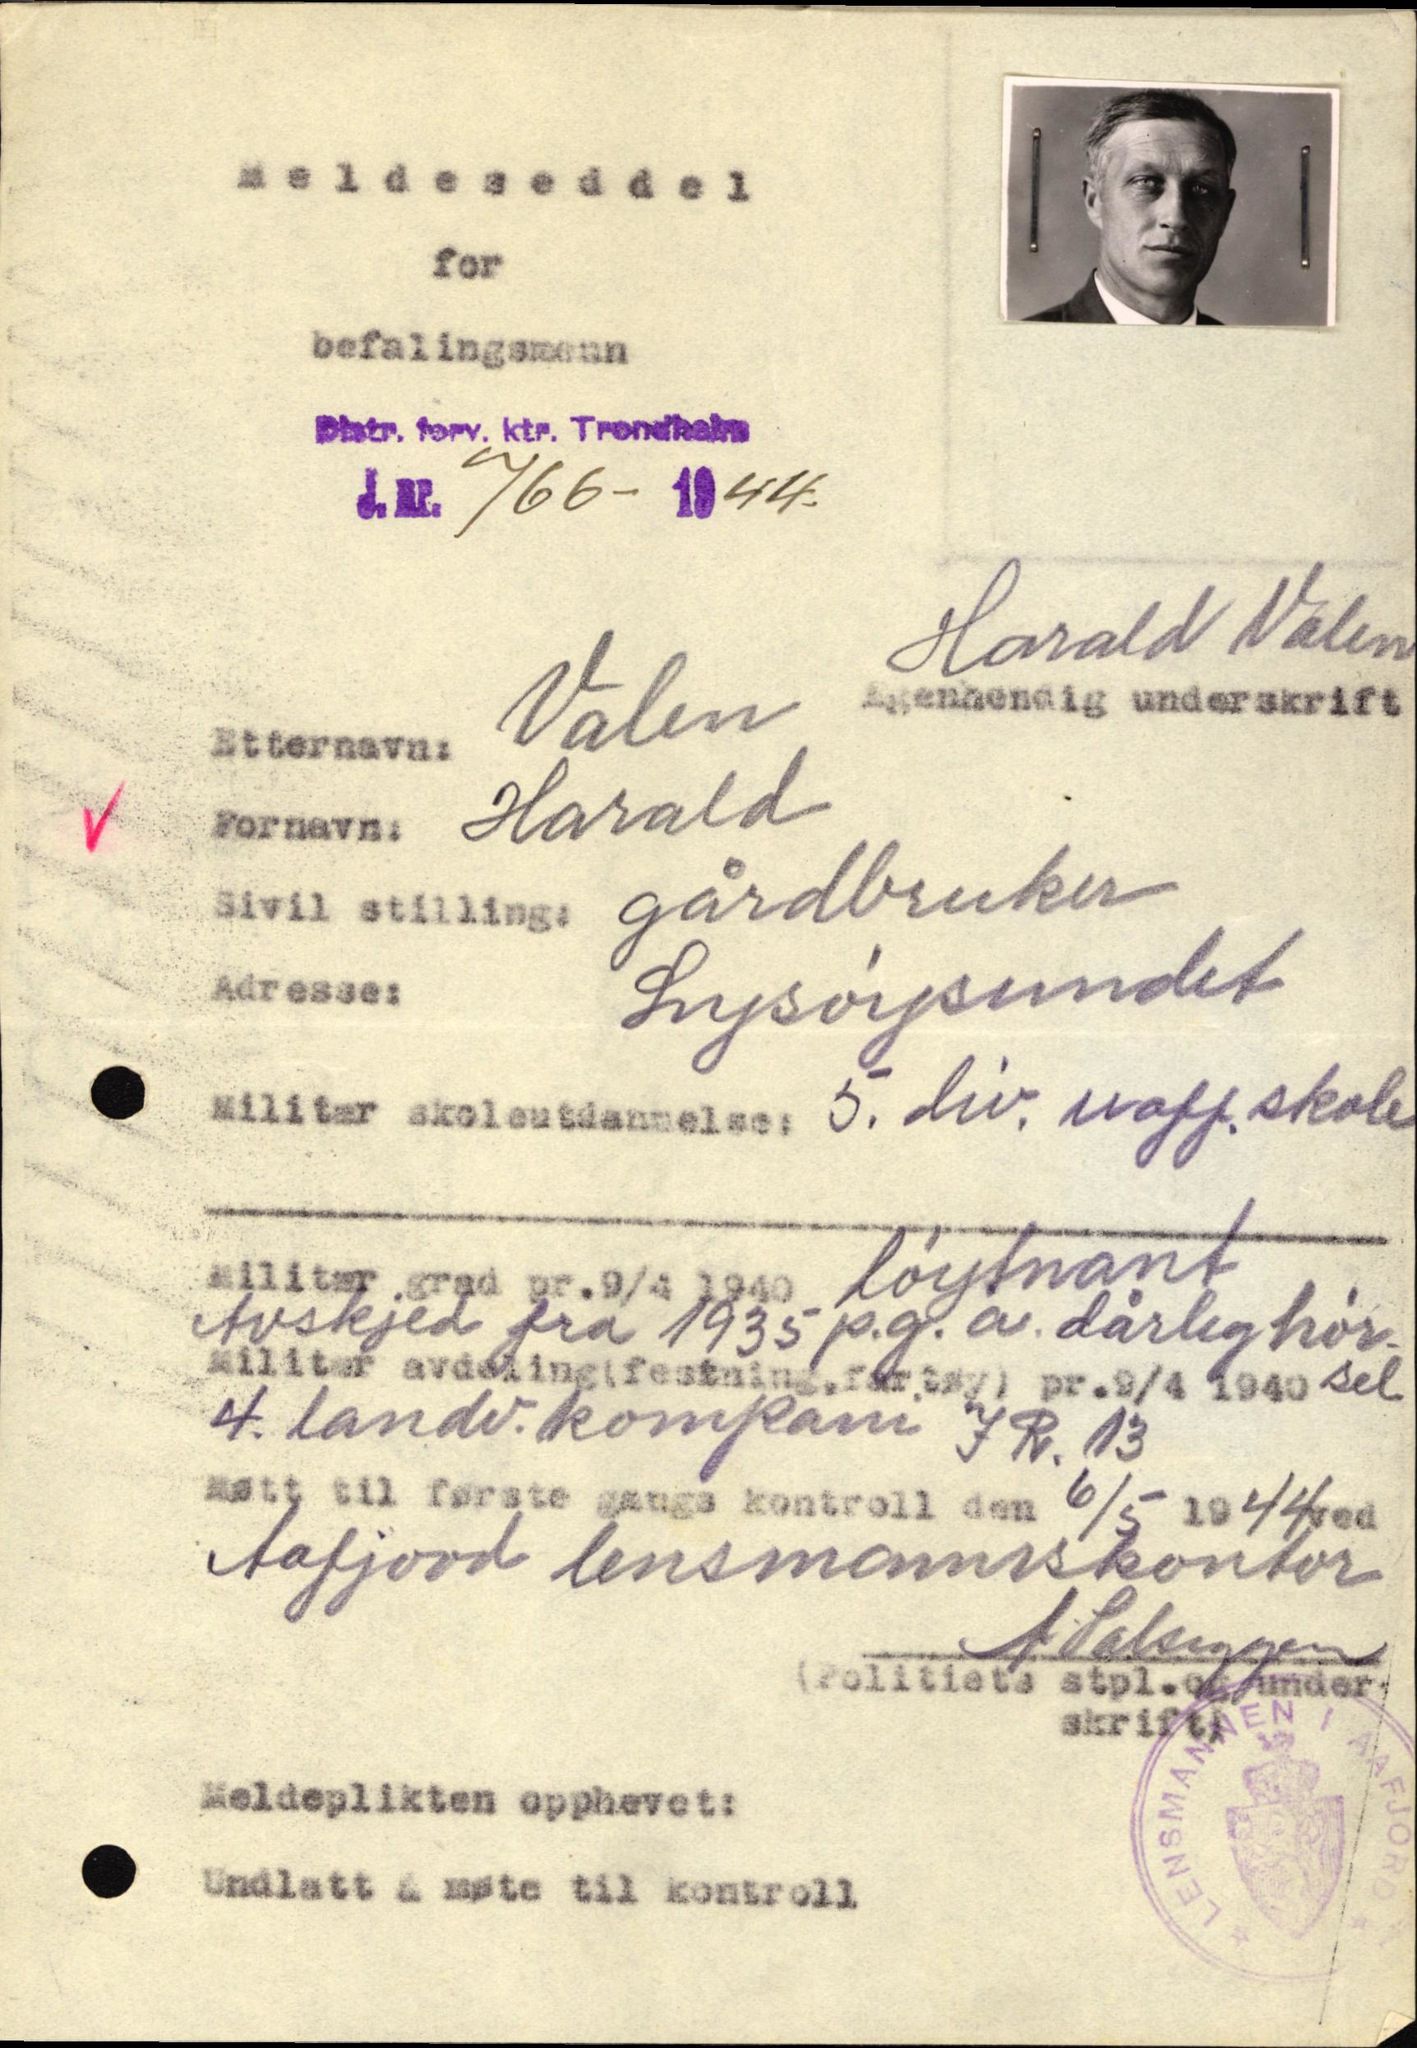 Meldeseddel
for
befalingsmenn
Distr. forv. ktr. Trondheim
J. nr. 766 - 1944.
Harald Valen
Egenhendig underskrift
Etternavn: Valen
Fornavn: Harald
Sivil stilling: gårdbruker
Adresse: Lysøysundet
Militær skoleutdannelse: 5. div. uoff. skole
Militær grad pr.9/4 1940 løytnant
Avskjed fra 1935 p.g.a. dårleg hør-
Militær avdeling(festning,fartøy) pr.9/4 1940 sel
4. landv. kompani I R. 13
Møtt til første gangs kontroll den 6/5 1944 ved
Aafjord lensmannskontor
(Politiets stpl.og under-
skrift)
LENSMANNEN I AAFJORD
Meldeplikten opphevet:
Undlatt å møte til kontroll